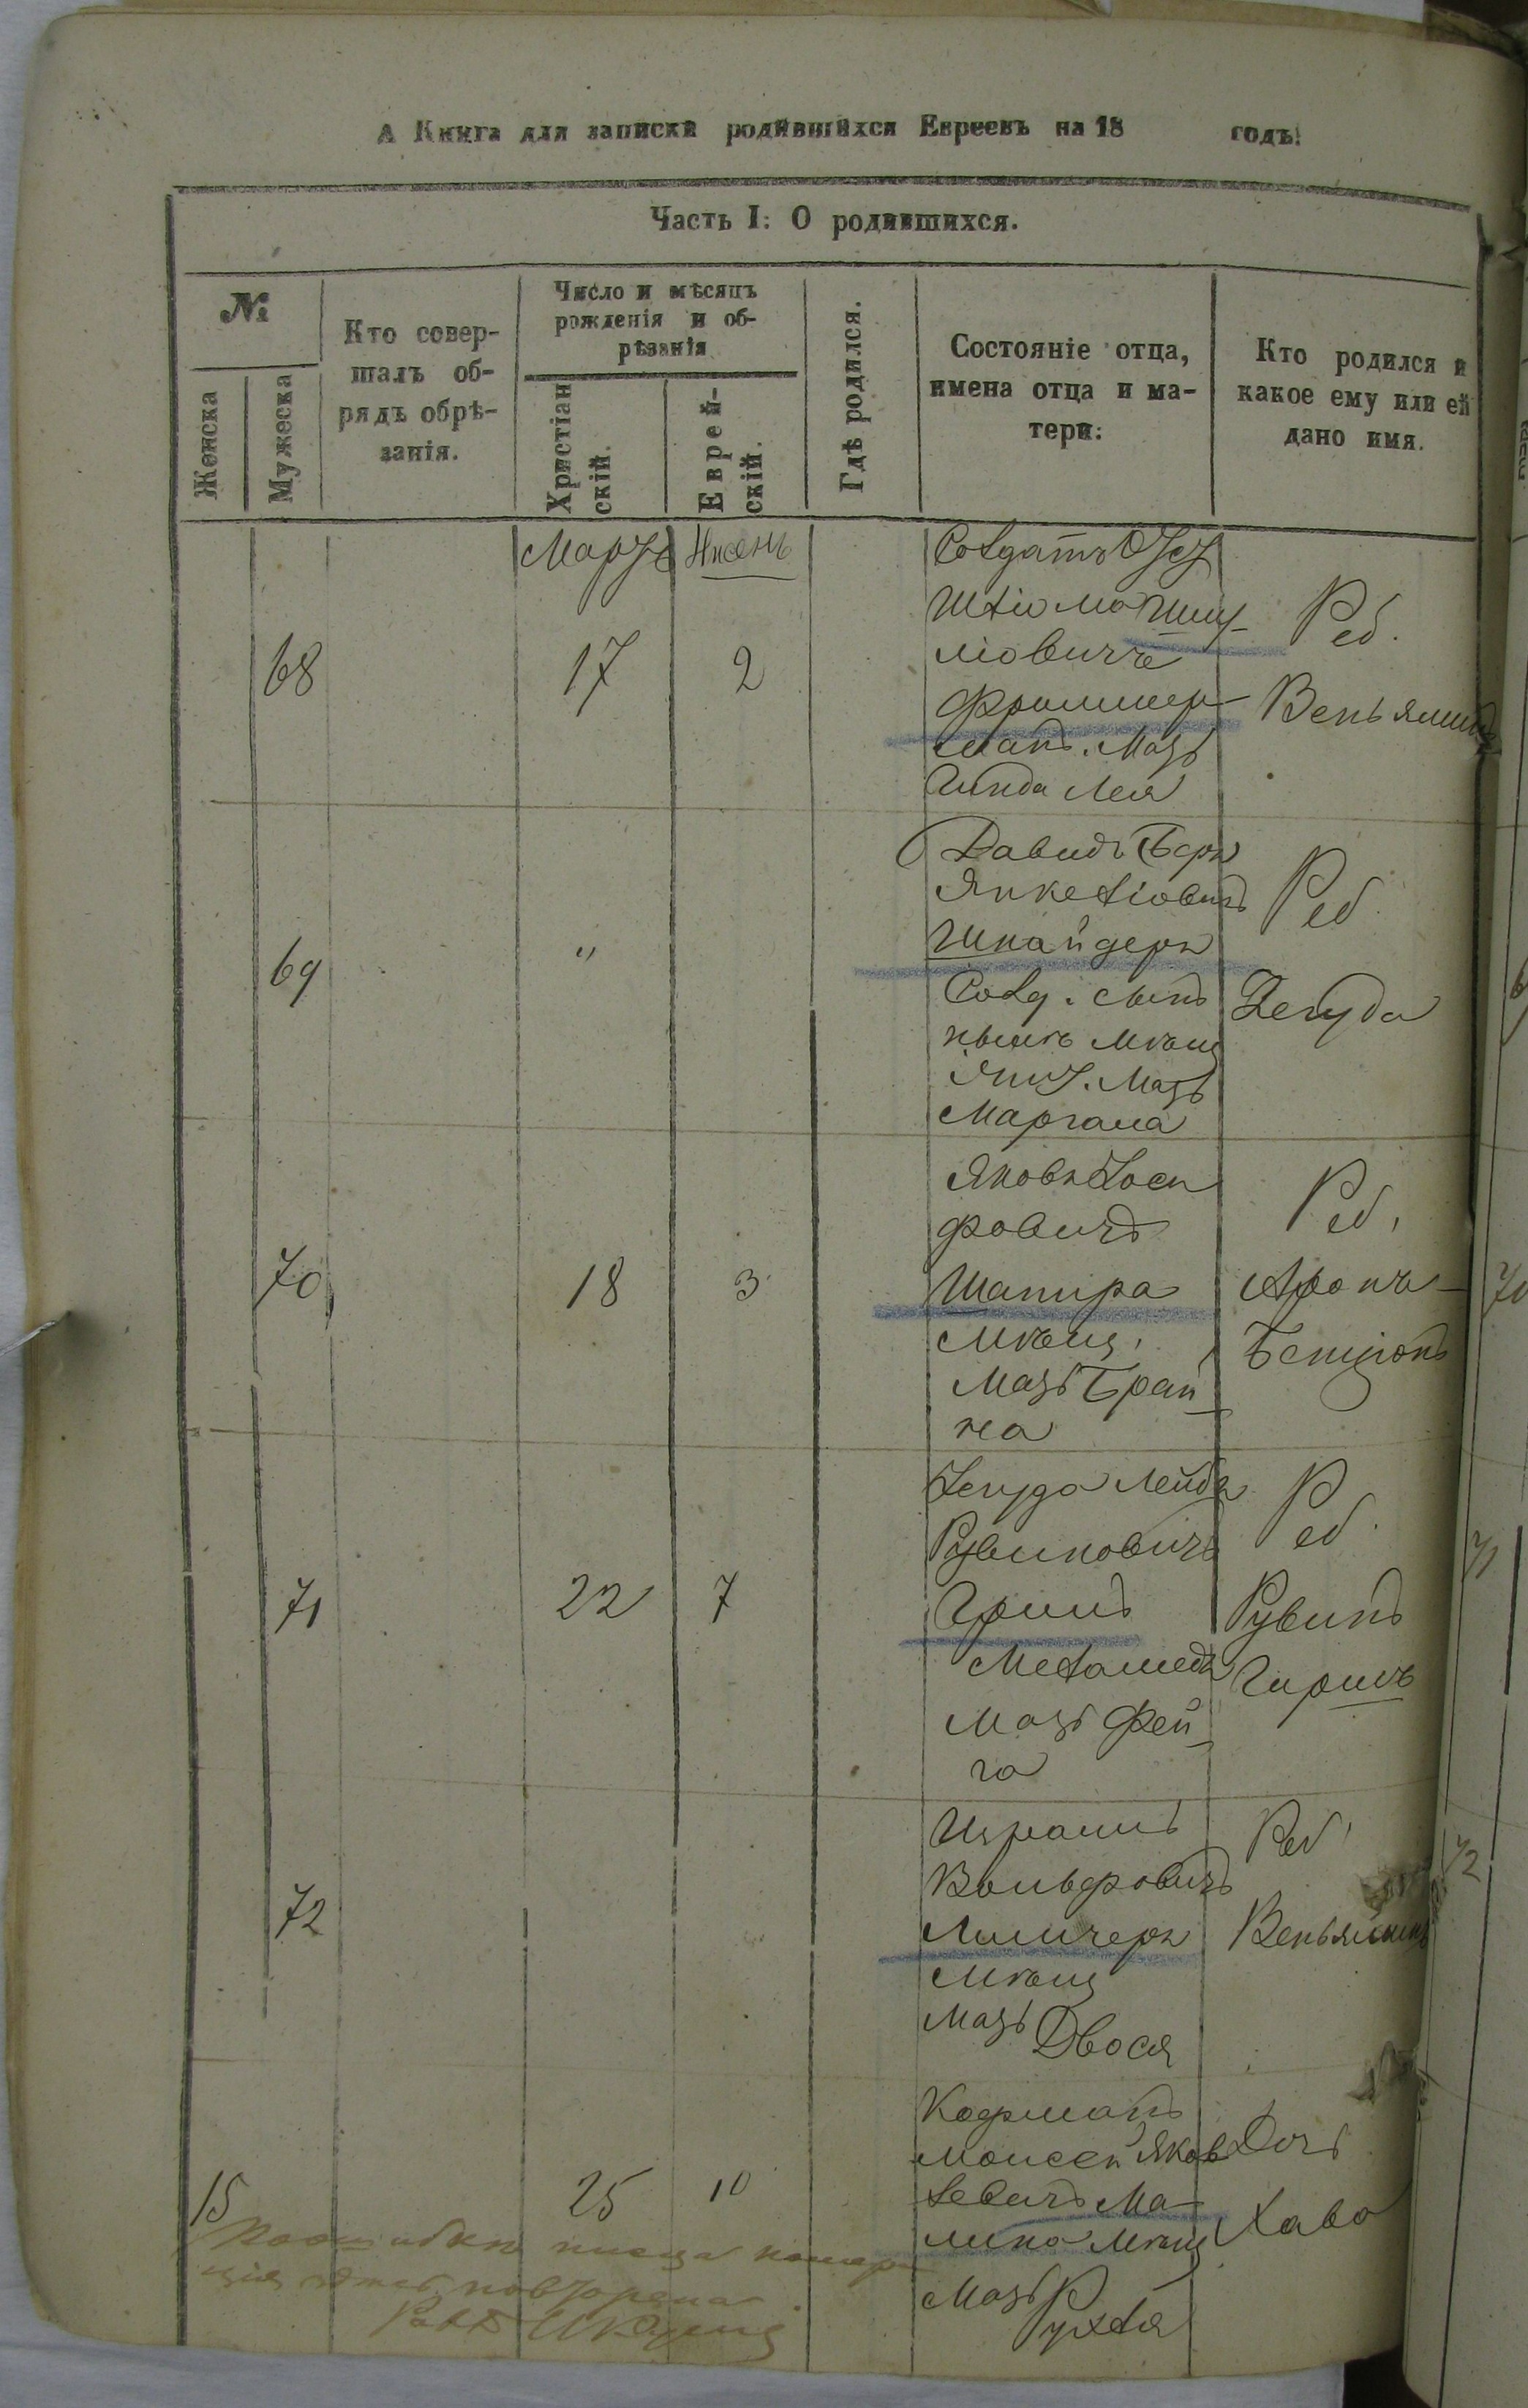 А Книга для записки родившихся Евреевъ на 18 годъ.
Часть I: О родившихся.
№
Женска
Мужеска
Кто совер-
шалъ об-
рядъ обрѣ-
занія.
Число и мѣсяцъ
рожденія и об-
рѣзанія
Христіан
скій.
Еврей-
скій.
Гдѣ родился.
Состояніе отца,
имена отца и ма-
тери:
Кто родился и
какое ему или ей
дано имя.
Мартъ Нисень
68
17
2
Солдатъ
Шліома Шму-
ліовичъ
Фриммер-
манъ. Мать
Гинда Лея
Реб.
Веньяминъ
69
"
Давидъ Беръ
Янкеліовичъ
Шнайдеръ
Солд. сынъ
нынѣ мѣщ
Мать
Маргала
Реб
Іегуда
70
18
3
Яковъ Іоси
фовичъ
Шапира
мѣщ.
Мать Брай
на
Реб.
Аронъ-
Бенціонъ
71
22
7
Іегуда Лейбъ
Рувиновичъ
Гринъ
Меламедъ
Мать Фей
га
Реб.
Рувинъ
Гиршъ
72
Израиль
Вольфовичъ
мѣщ
Мать Двося
Реб.
Веньяминъ
15
25
10
Кофманъ
Моисей Янкв
елевичъ Ма-
лина мѣщ
Мать
Рухля
Дочь
Хава
По ошибкѣ писца нумера
ція повторена
Равв
70
71
72